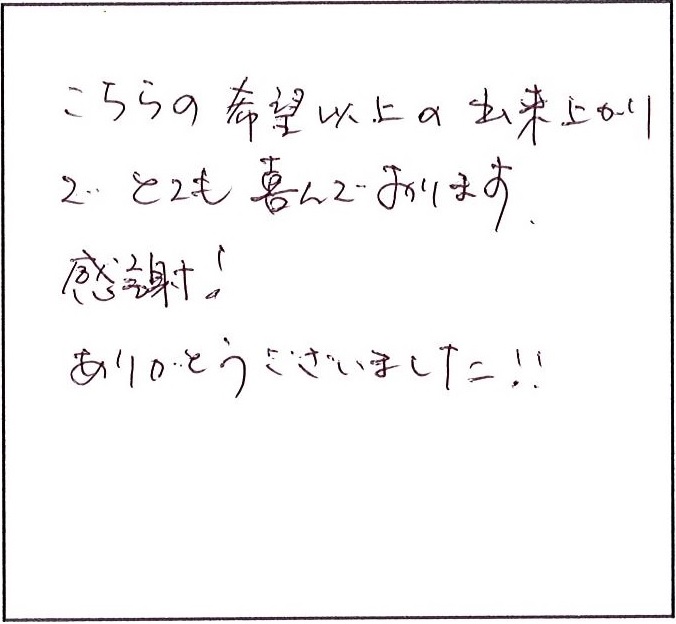 こちらの希望以上の出来上がり
で とても喜んでおります.
感謝!
ありがとうございました!!